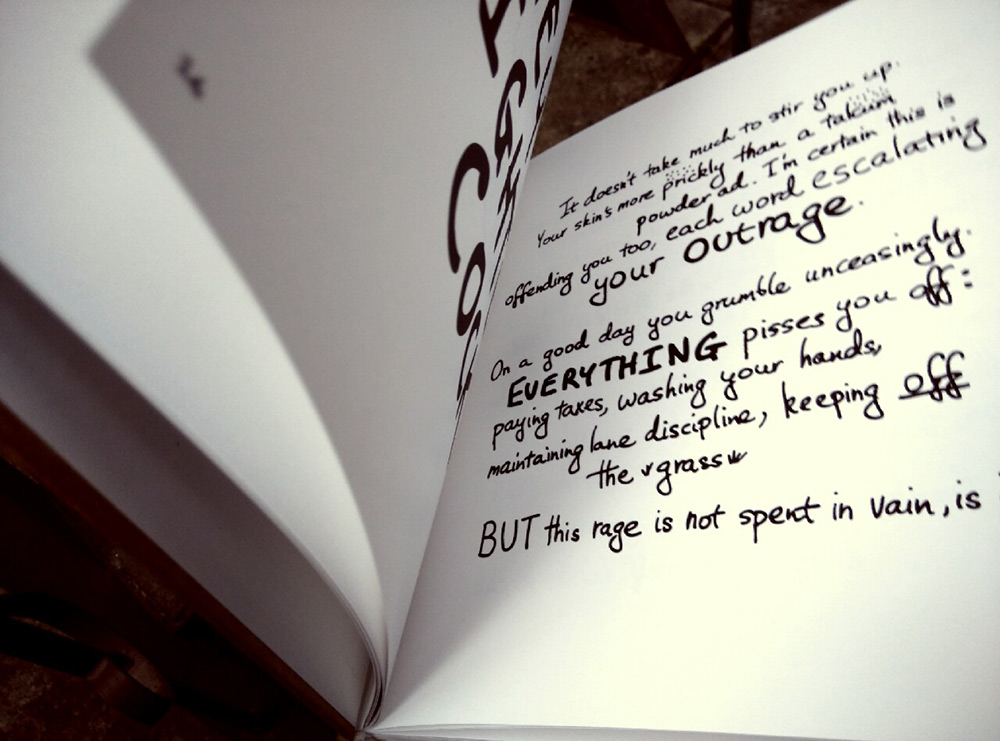 It doesn't take much to stir you up.
Your skin's more prickly than a talcum
powder ad. I'm certain this is
offending you too, each word escalating
your outrage.
On a good day you grumble unceasingly.
EVERYTHING pisses you off:
paying taxes, washing your hands,
maintaining lane discipline, keeping off
the grass
BUT this rage is not spent in vain, is